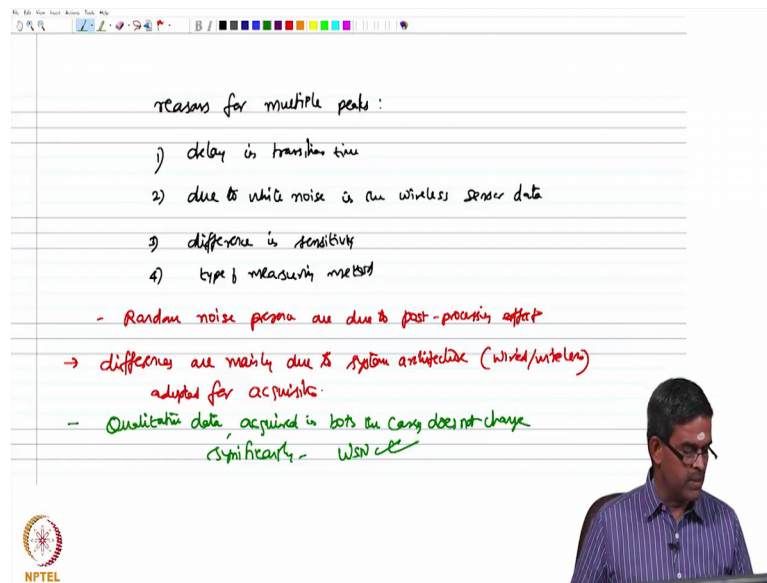 File Edit View Insert Actions Tools Help
B I
reasons for multiple peaks :
1) delay in transition time
2) due to white noise in the wireless sensor data
3) difference in sensitivity
4) type of measuring method
- Random noise presence are due to post-processing effect
→ differences are mainly due to system architecture (wired/wireless)
adopted for acquisition.
- Qualitative data, acquired in both the cases does not change
significantly - WSN ✓
NPTEL